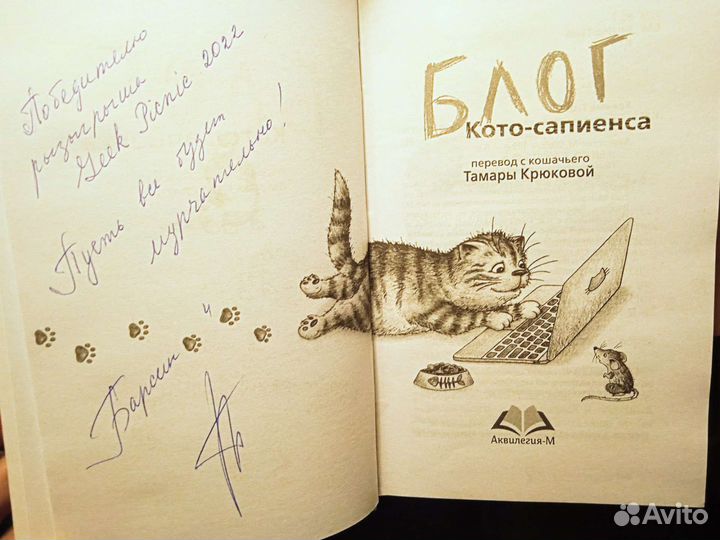 Победителю
розыгрыша
Geek Picnic 2022
Пусть все будет
мурчательно!
Барсик и
БЛОГ
Кото-сапиенса
перевод с кошачьего
Тамары Крюковой
Аквилегия-М
Avito